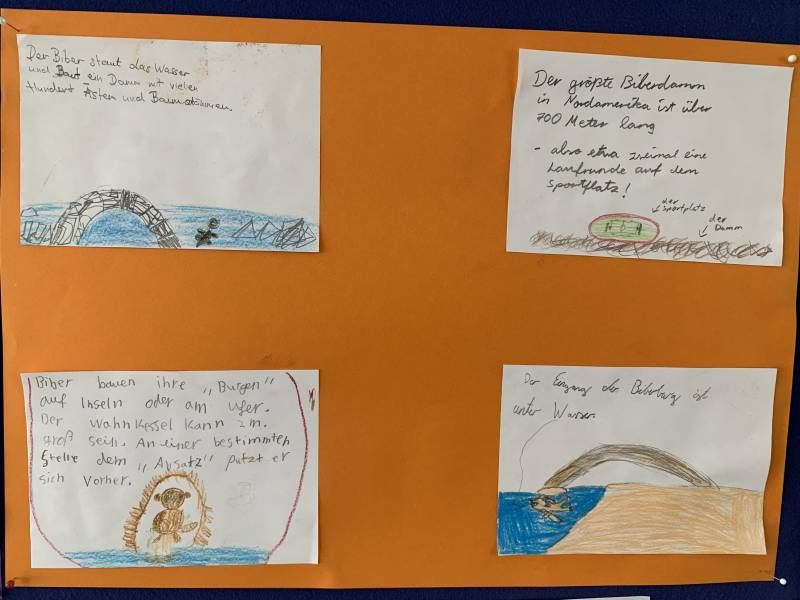 Der Biber staut das Wasser
und Baut ein Damm mit vielen
Hundert Ästen und Baumstämmen.
Der größte Biberdamm
in Nordamerika ist über
700 Meter lang
- also etwa zweimal eine
Laufrunde auf dem
Sportplatz!
der
Sportplatz
der
Damm
Biber bauen ihre „Burgen"
auf Inseln oder am Ufer.
Der Wahnkessel kann 2m.
groß sein. An einer bestimmten
Stelle dem „Ausatz" putzt er
sich Vorher.
Der Eingang der Biberburg ist
unter Wasser.